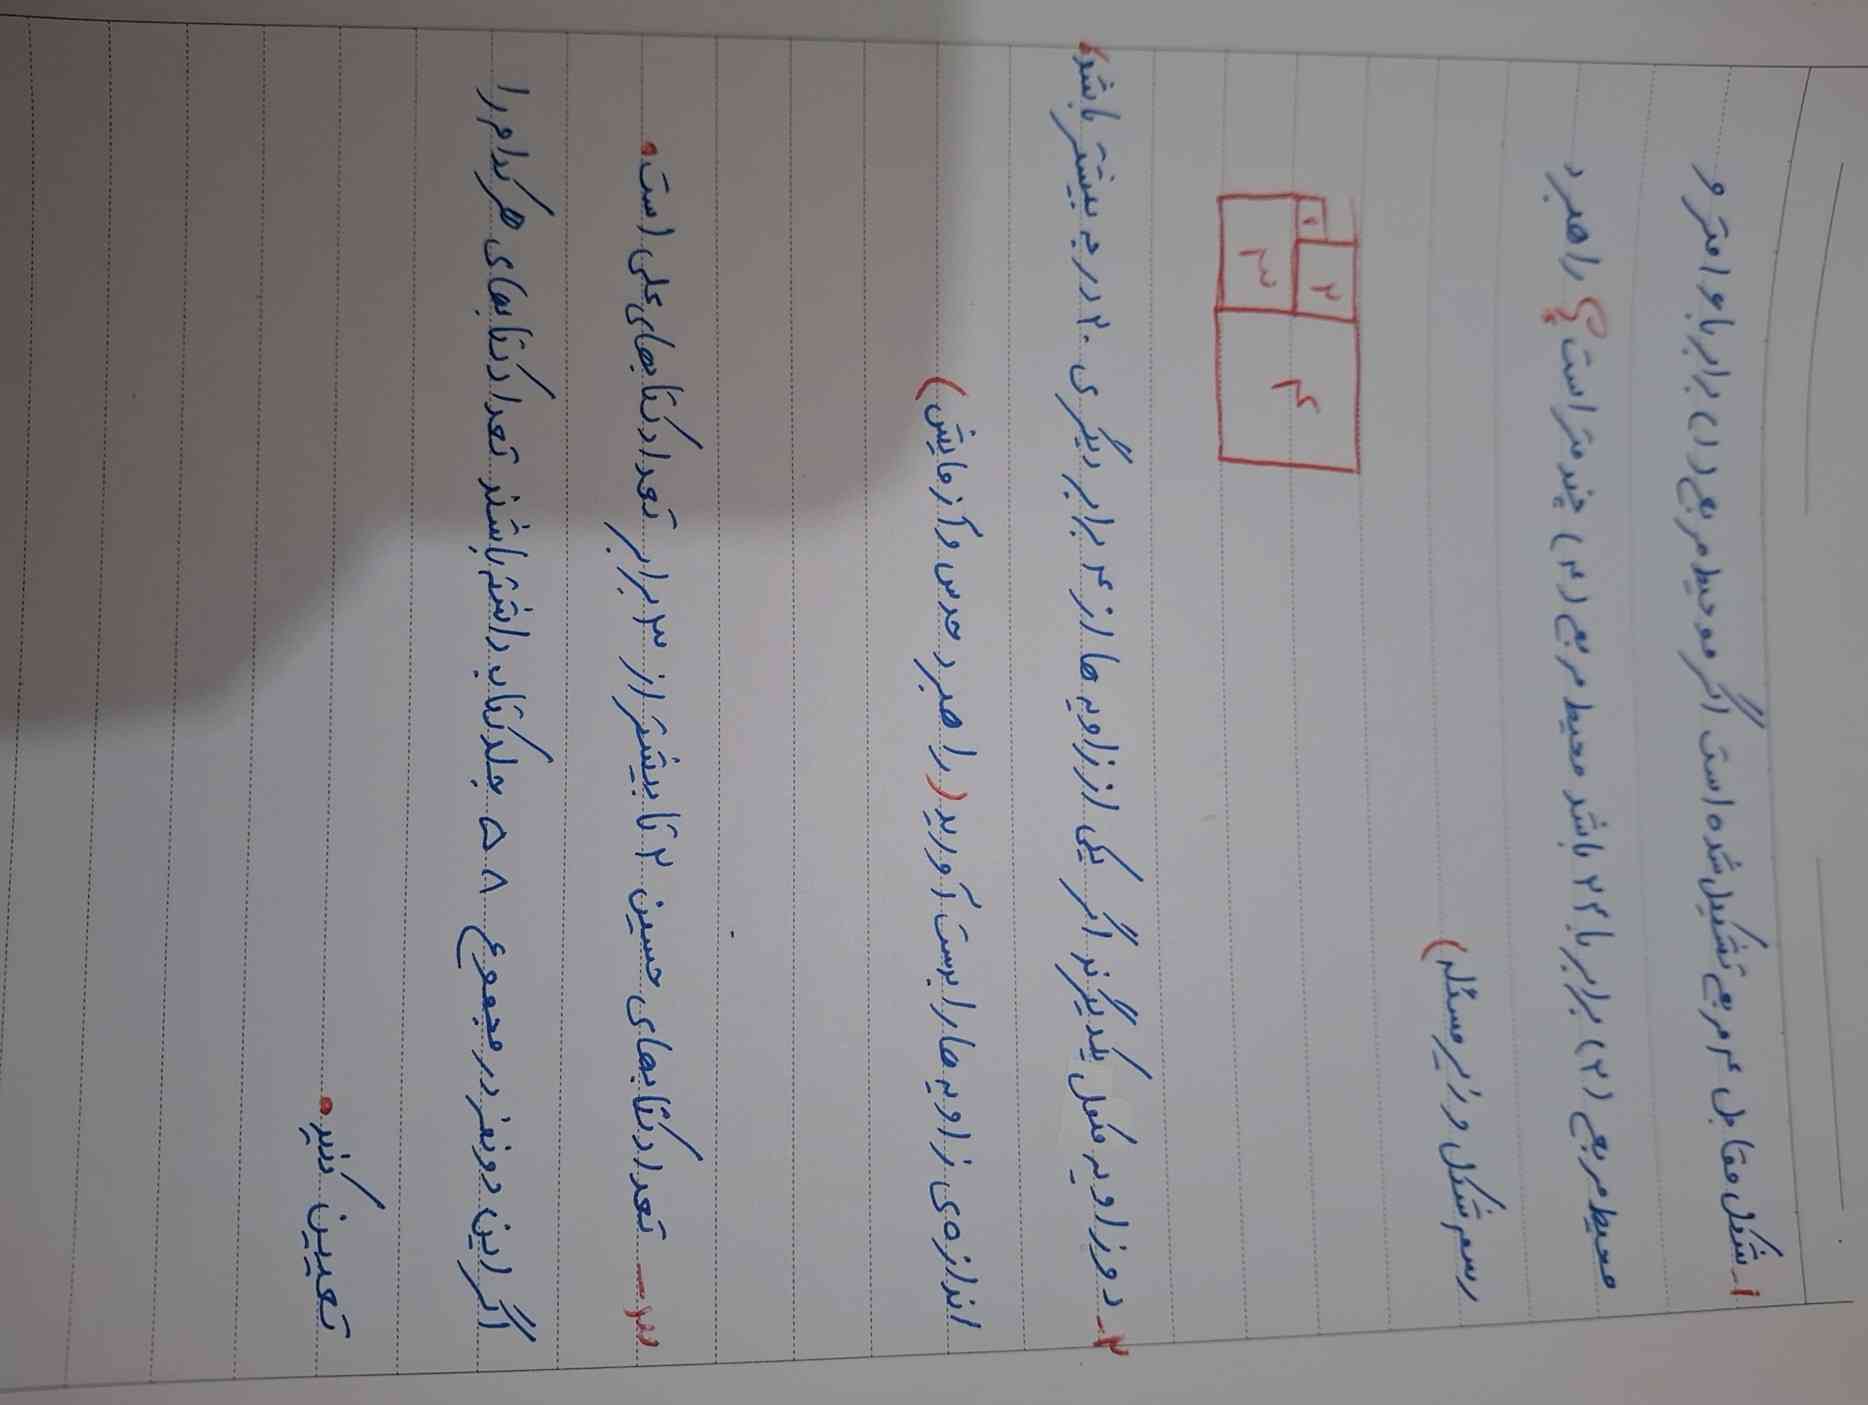 ۱ـ شکل مقابل ۴ مربع تشکیل شده است اگر محیط مربع (۱) برابر با ۱۶ متر و
محیط مربع (۲) برابر با ۲۴ باشد محیط مربع (۴) چند متر است؟ (راهبرد
رسم شکل و زیر مسئله)
۱
۲
۳
۴
۲ـ دو زاویه مکمل یکدیگرند اگر یکی از زاویه ها از ۴ برابر دیگری ۲۰ درجه بیشتر باشد،
اندازه ی زاویه ها را بدست آورید (راهبرد حدس و آزمایش)
۳ـ تعداد کتابهای حسین ۲ تا بیشتر از ۳ برابر تعداد کتابهای علی است.
اگر این دو نفر در مجموع ۵۸ جلد کتاب داشته باشند تعداد کتابهای هر کدام را
تعیین کنید.